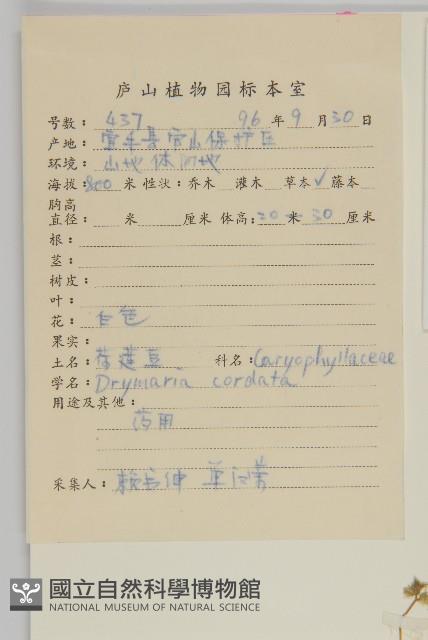 庐山植物园标本室
号数: 437 96年9月30日
产地: 宜丰县官山保护区
环境: 山地林间地
海拔: 800米 性状: 乔木 灌木 草本✓ 藤本
胸高
直径: 米 厘米 体高: 20米30厘米
根:
茎:
树皮:
叶:
花: 白色
果实:
土名: 荷莲豆 科名: Caryophyllaceae
学名: Drymaria cordata
用途及其他:
药用
采集人:
國立自然科學博物館
NATIONAL MUSEUM OF NATURAL SCIENCE